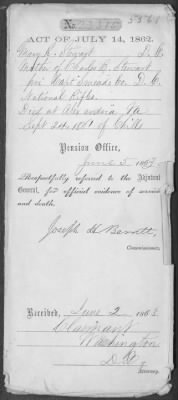 No. 23,815
5561
ACT OF JULY 14, 1862.
Mary A. Stewart D.C.
Mother of Charles B. Stewart
Co. D.C.
National Rifles
Died at Alexandria Va
Sept 24 1861 of Chills
Pension Office,
June 3, 1863
Respectfully referred to the Adjutant
General, for official evidence of service
and death.
Joseph H Barrett
Commissioner.
Received, June 2 1863
Claimant
Washington
D.C.
Attorney.